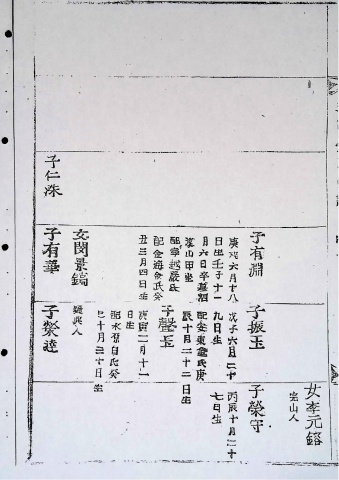 子仁洙
子有淵
庚戌六月十八
日生壬子十一
月六日卒墓
山甲坐
配寧越嚴氏
配金海金氏癸
丑三月四日生
女閔景鎬
驪興人
子有華
子振玉
戊子六月二十
九日生
配安東權氏庚
辰十月二十二日生
子聲玉
庚寅二月十二
日生
配水原白氏癸
巳十月二十日生
子榮達
女李元鎔
完山人
子榮守
丙辰十月二十
七日生